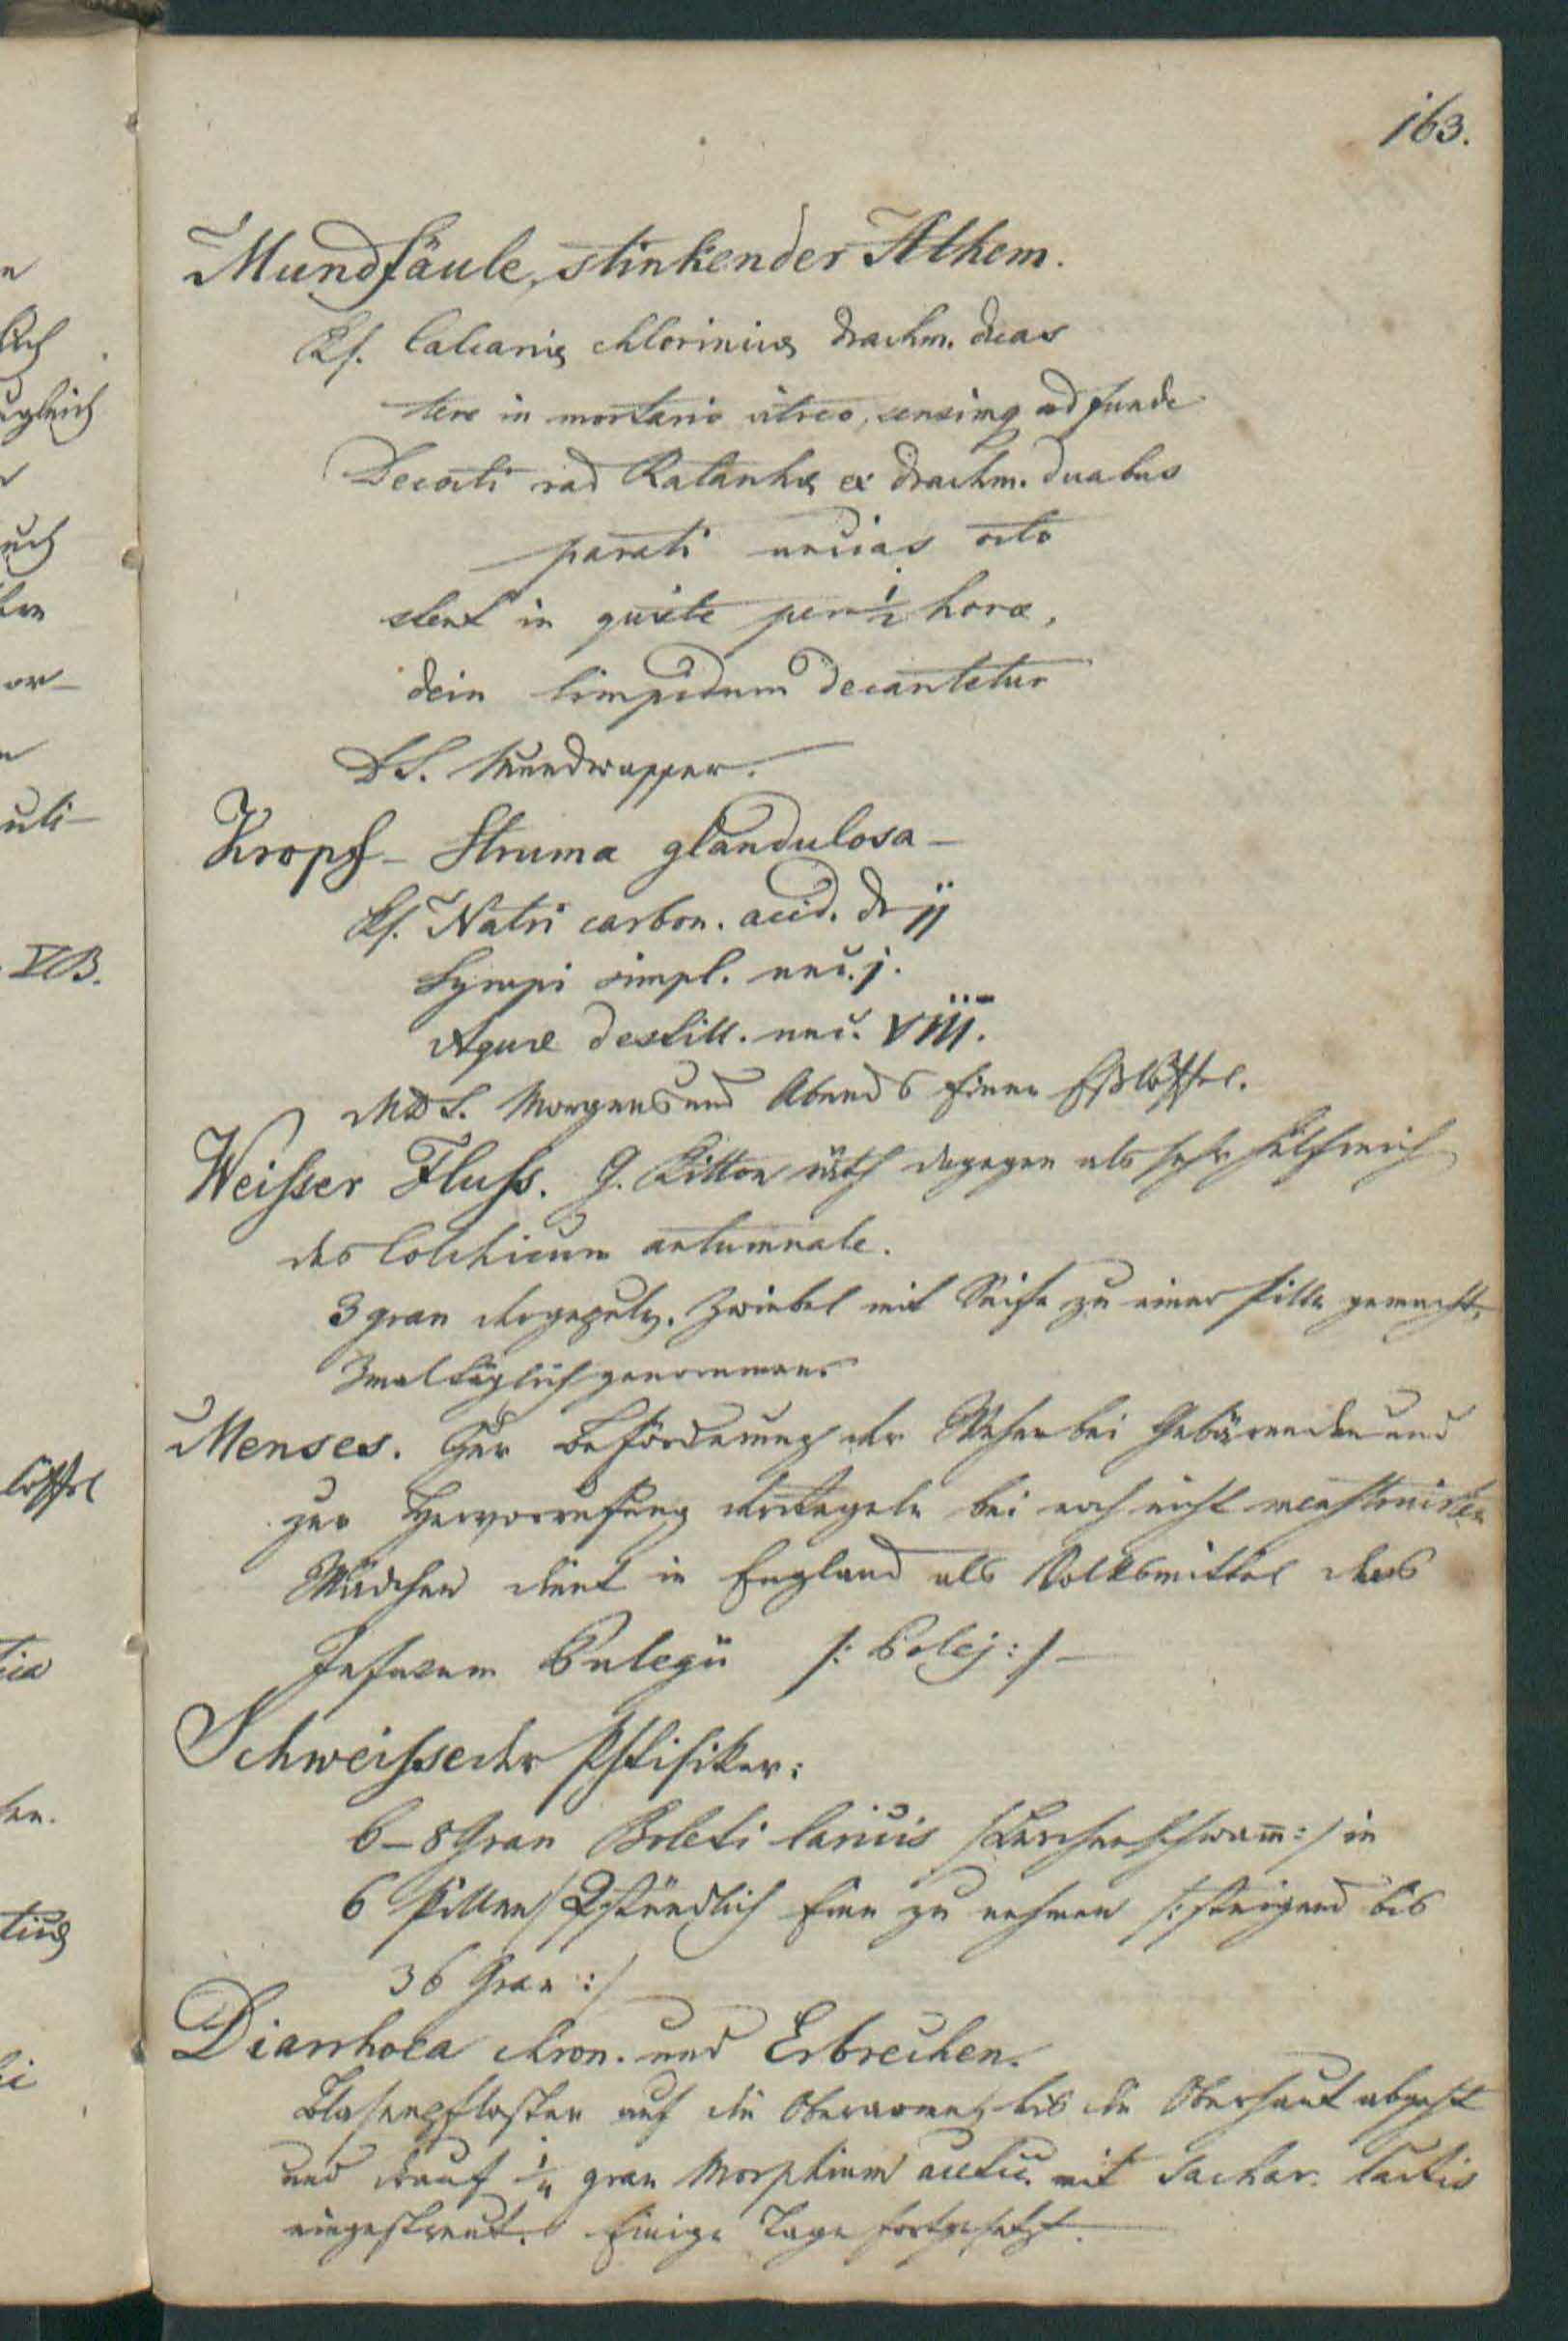 163.
Mundfäule, stinkender Athem.
Rf. Calcariæ chlorinicæ drachm. duas
tere in mortario vitreo, sensimq adfunde
Decocti rad Ratanhæ ex drachm. duabus
parati uncias octo
stent in quiete per ½ horæ,
dein limpidum decantetur
DS. Mundwasser.
Kropf – Struma glandulosa –
Rf. Natri carbon. acid. dr jj
Syrupi simpl. unc. j.
Aquæ destill. unc. VIII.
MDS. Morgens und Abends Einen Eßlöffel.
Weisser Fluss. G. Ritton räth dagegen als sehr hülfreich
das Colchicum autumnale.
3 gran der gepulv. Zwiebel mit Seife zu einer Pille gemacht,
3mal täglich genommen.
Menses. Zur Beförderung der Wehen bei Gebärenden und
zur Hervorrufung der Regeln bei noch nicht menstruirten
Mädchen dient in England als Volksmittel das
Infusum Pulegii /: Polej :/ –
Schweisse der Phtisiker:
6–8 Gran Boleti laricis /Lerchenschwam̅ :/ in
6 Pillen / 2stündlich Eine zu nehmen /: steigend bis
36 Gran :/
Diarrhoea chron. und Erbrechen.
Blasenpflaster auf die Oberarme, bis die Oberhaut abgeht
und drauf ¼ gran Morphium acetic. mit Sachar. lactis
eingestreut. Einige Tage fortgesetzt.
n
lich
ugleich
r
uch
or–
n
uli–
VB.
löffel
tica
ken.
ticæ